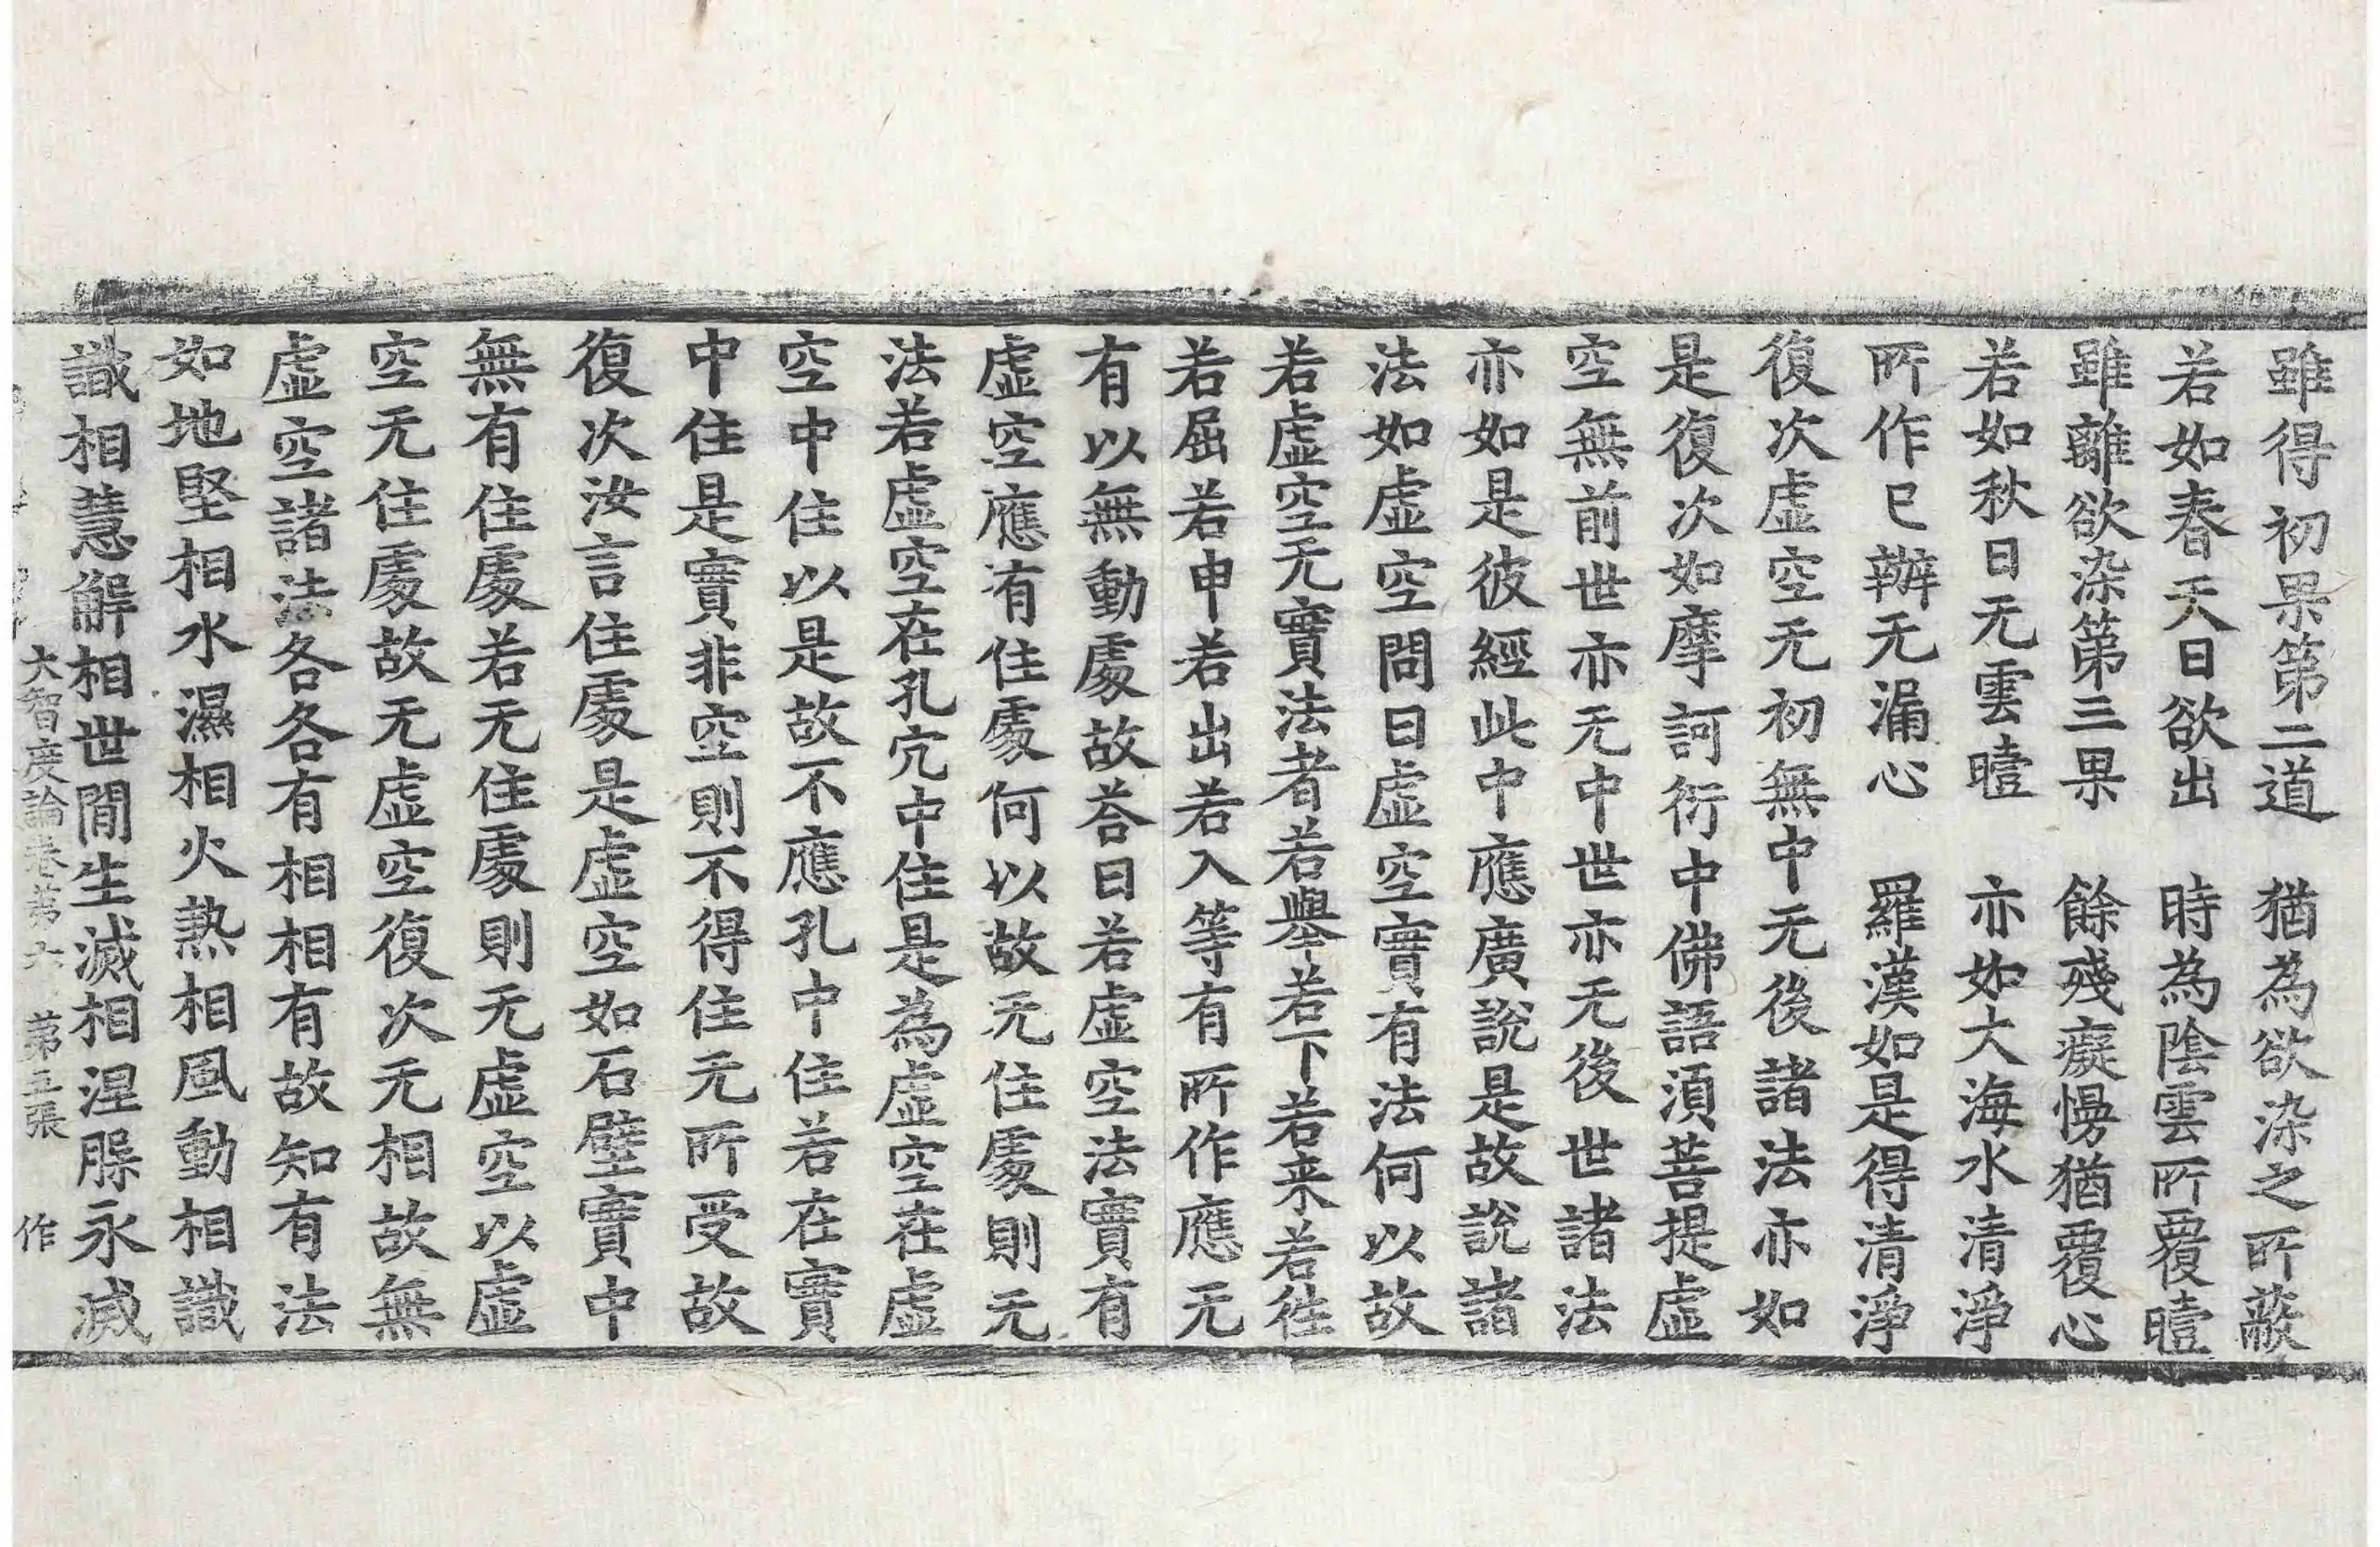 雖得初果第二道　猶為欲染之所蔽
若如春天日欲出　時為陰雲所覆曀
雖離欲染第三果　餘殘癡慢猶覆心
若如秋日无雲曀　亦如大海水清淨
所作已辦无漏心　羅漢如是得清淨
復次虛空无初無中无後諸法亦如
是復次如摩訶衍中佛語湏菩提虛
空無前世亦无中世亦无後世諸法
亦如是彼經此中應廣說是故說諸
法如虛空問曰虛空實有法何以故
若虛空无實法者若舉若下若来若往
若屈若申若出若入等有所作應无
有以無動處故荅曰若虛空法實有
虛空應有住處何以故无住處則无
法若虛空在孔穴中住是為虛空在虛
空中住以是故不應孔中住若在實
中住是實非空則不得住无所受故
復次汝言住處是虛空如石壁實中
無有住處若无住處則无虛空以虛
空无住處故无虛空復次无相故無
虛空諸法各各有相相有故知有法
如地堅相水濕相火熱相風動相識
識相慧解相世間生滅相涅脲永滅
大智度論卷苐六　苐五張　作